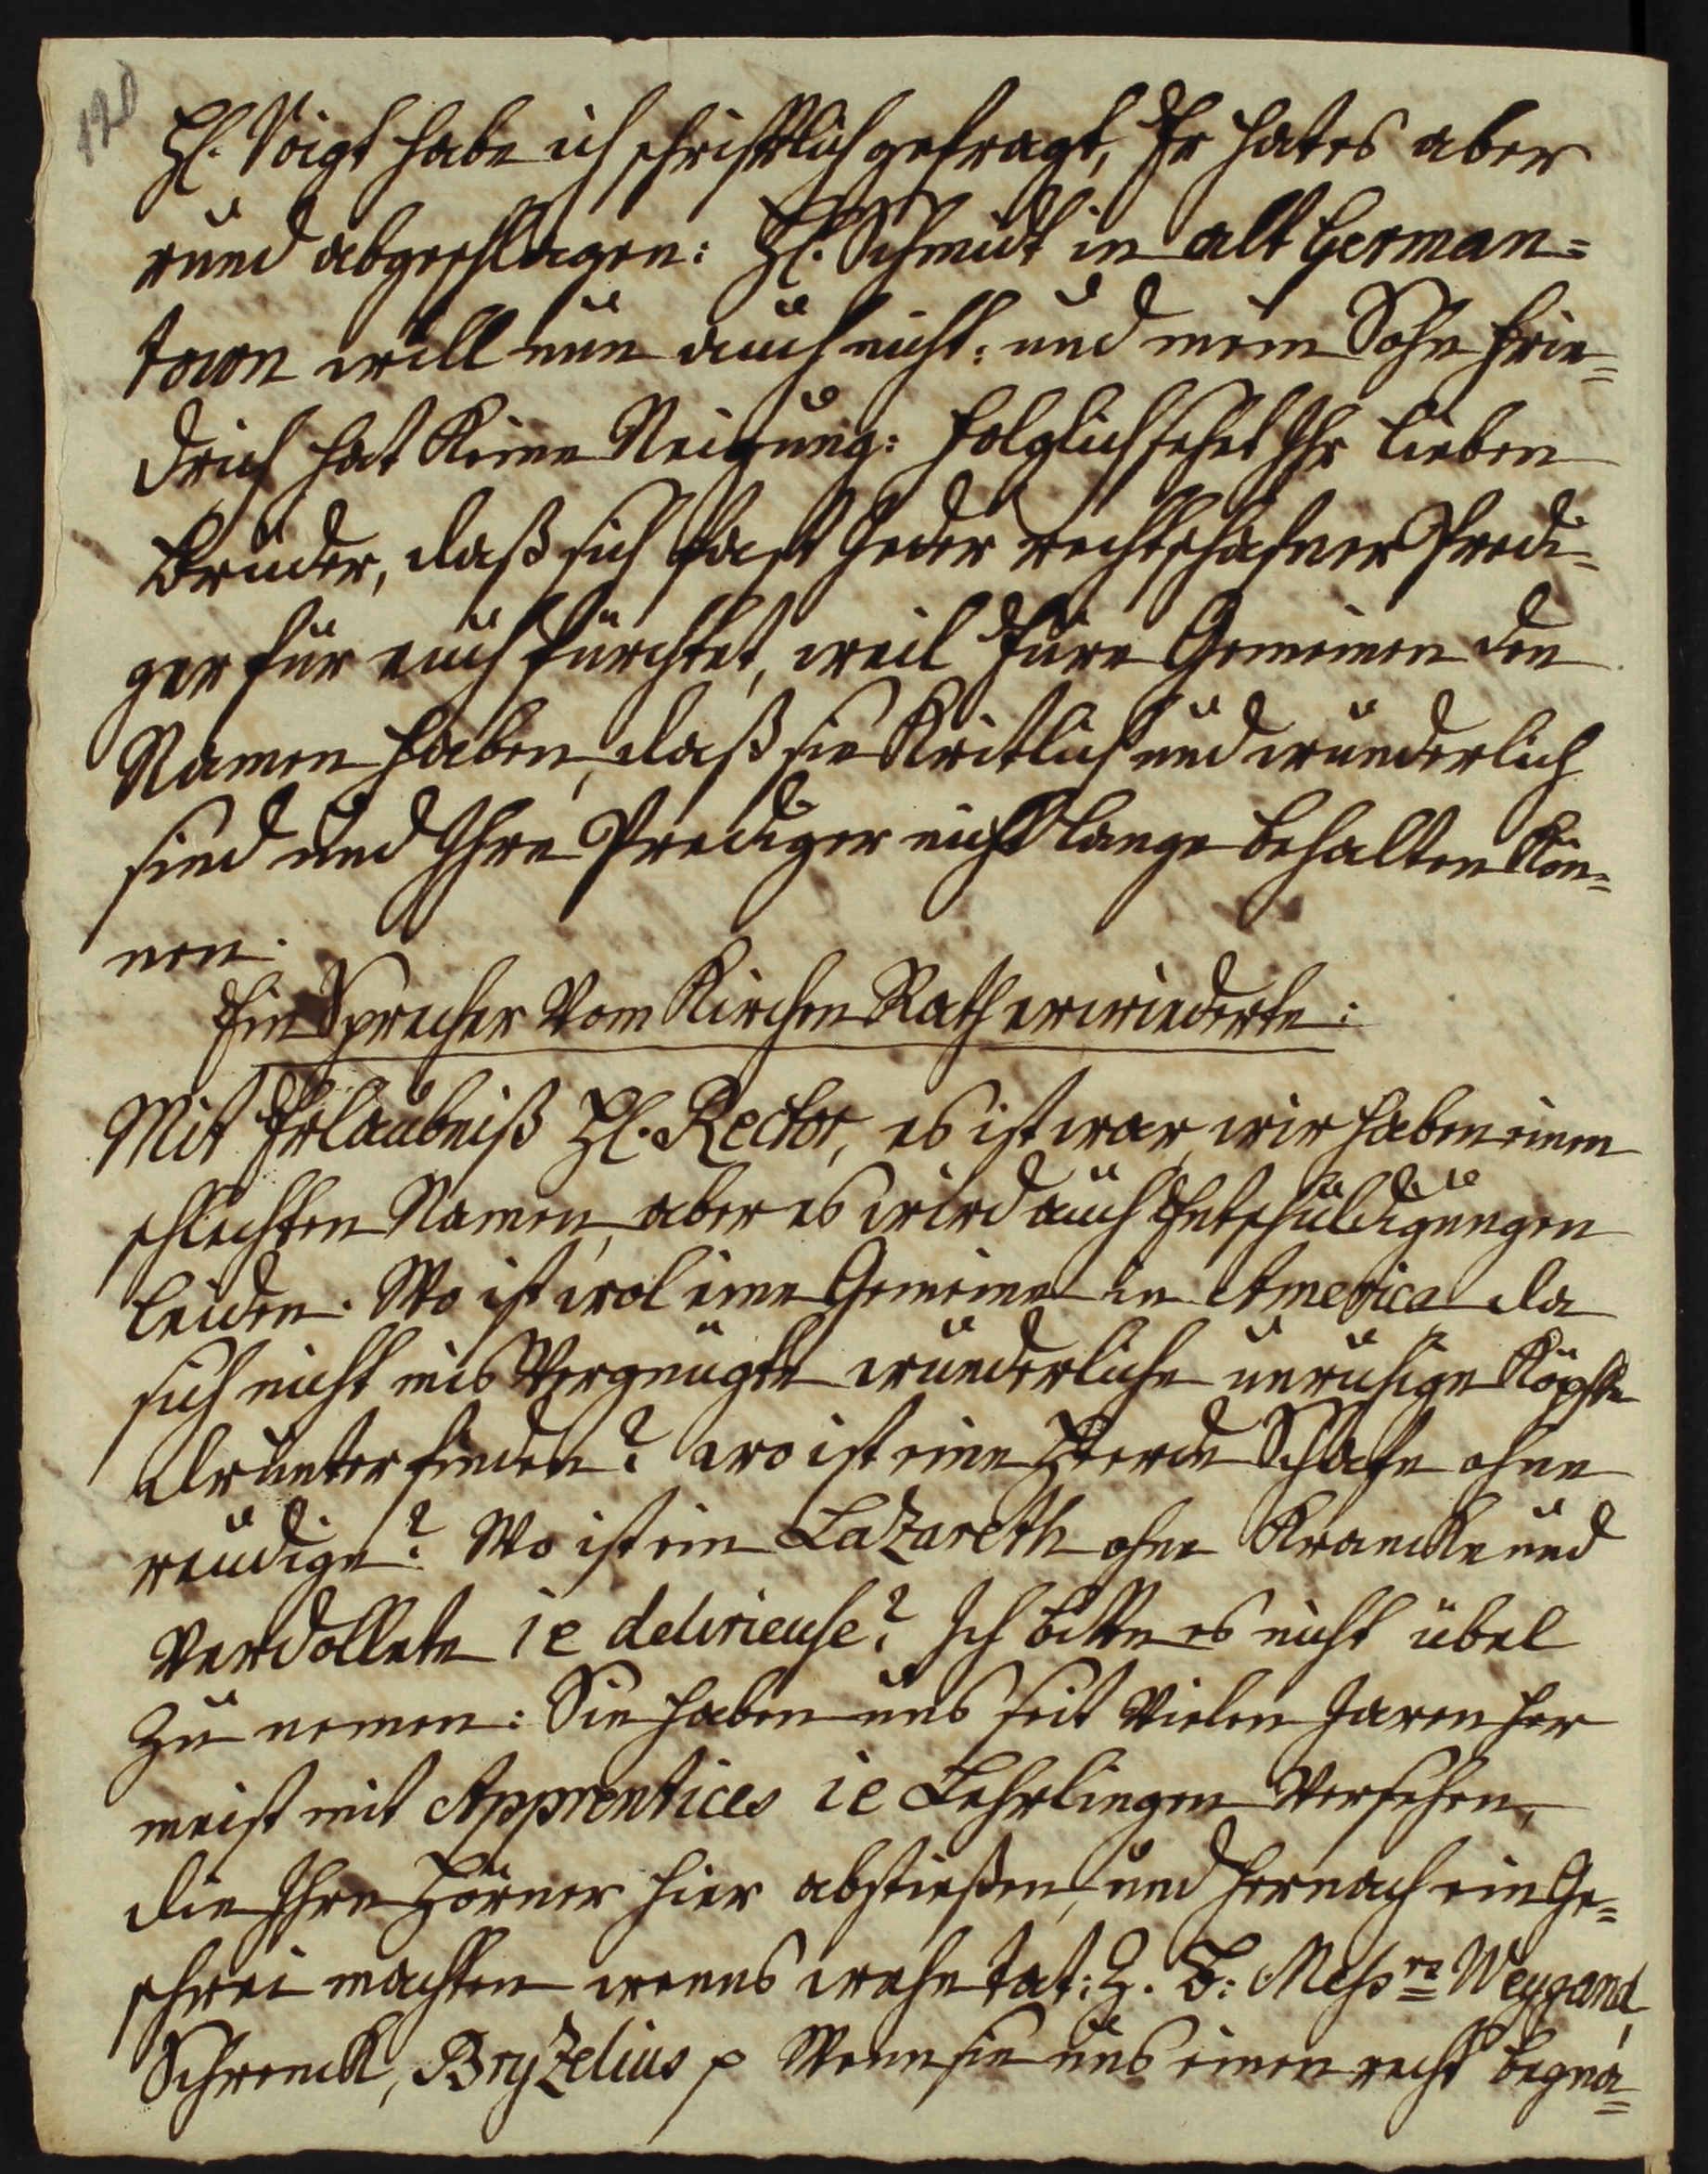 120
H. Voigt habe ich schriftlich gefragt, Er hat es aber
rund abgeschlagen: H. Schmidt in alt German=
town will nun auch nicht: und mein Sohn Frie=
drich hat keine Neigung: folglich sehet Ihr lieben
Brüder, daß sich fast Jeder rechtschafner Predi=
ger für euch fürchtet, weil Eure Gemeinen den
Namen haben, daß sie kritlich und wunderlich
sind und Ihre Prediger nicht lange behalten kön=
nen.
Ein Sprecher vom Kirchen Rath erwiederte:
Mit Erlaubniß H. Rector, es ist war, wir haben einen
schlechten Namen, aber es wird auch Entschuldigungen
leiden. Wo ist wol eine Gemeine in America da
sich nicht misvergnügte wunderliche unruhige Köpfe
drunter finden? wo ist eine Heerde Schafe ohne
reudige? Wo ist ein Lazareth ohne Krancke und
verdollete ie delirieuse? Ich bitte es nicht übel
zu nemen: Sie haben uns seit vielen Jaren her
meist mit Apprentices ie Lehrlingen versehen,
die Ihre Hörner hier abstießen, und hernach ein Ge=
schrei machten wenns wehe tat: Z. B: Messrs Weygand,
Schrenck, Bryzelius p Wenn sie uns einen recht begna=